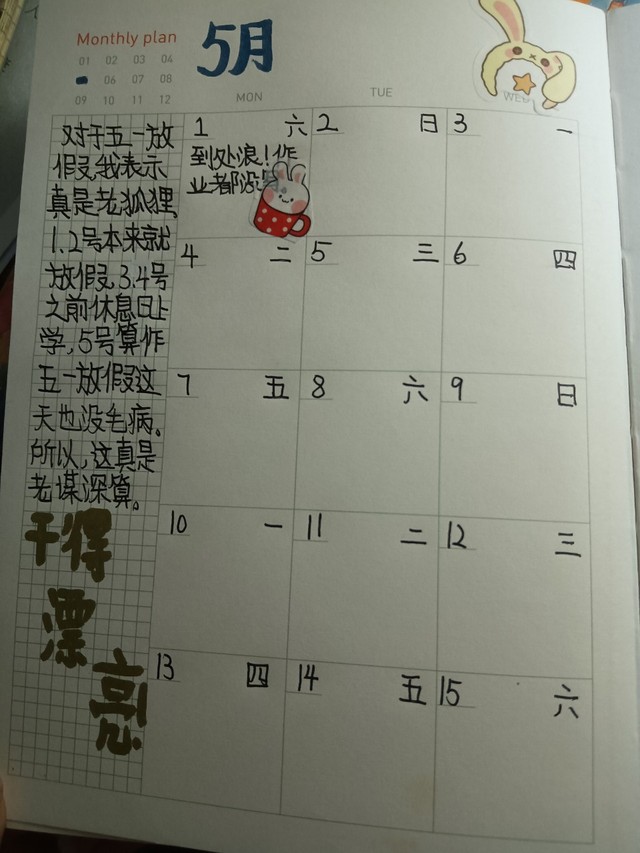 Monthly plan
01 02 03 04
06 07 08
09 10 11 12
5月
MON
TUE
WED
对于五一放
假,我表示
真是老狐狸,
1.2号本来就
放假,3.4号
之前休息日上
学,5号算作
五一放假这
天也没毛病。
所以,这真是
老谋深算。
干得
漂
亮
1 六
到处浪!作
业都没
2 日
3 一
4 二
5 三
6 四
7 五
8 六
9 日
10 一
11 二
12 三
13 四
14 五
15 六